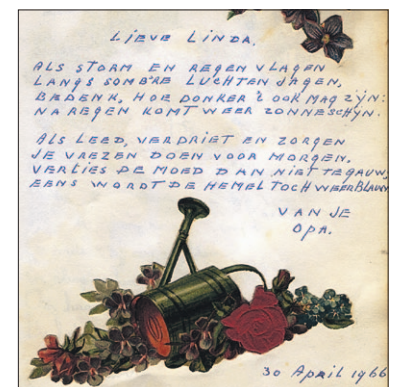 LIEVE LINDA.
ALS STORM EN REGEN VLAGEN
LANGS SOMB'RE LUCHTEN JAGEN,
BEDENK, HOE DONKER 'T OOK MAG ZIJN:
NA REGEN KOMT WEER ZONNESCHIJN.
ALS LEED, VERDRIET EN ZORGEN
JE VREZEN DOEN VOOR MORGEN,
VERLIES DE MOED DAN NIET TE GAUW,
EENS WORDT DE HEMEL TOCH WEER BLAUW
VAN JE
OPA.
30 April 1966